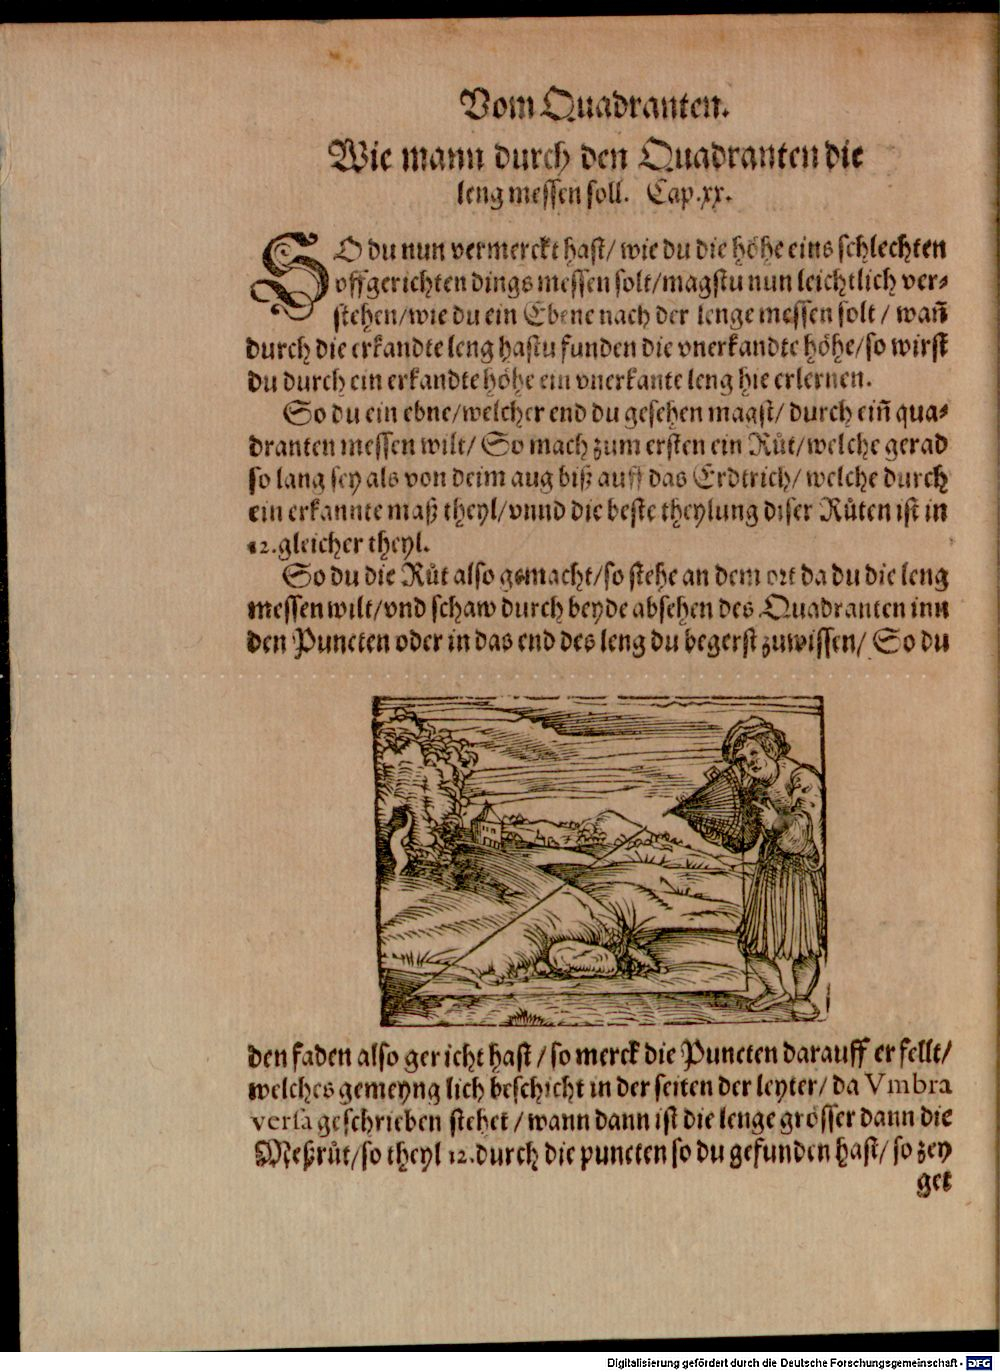 Vom Quadranten.
Wie mann durch den Quadranten die
leng messen soll. Cap.xx.
SO du nun vermerckt hast/ wie du die höhe eins schlechten
offgerichten dings messen solt/magstu nun leichtlich ver-
stehen/wie du ein Ebene nach der lenge messen solt / wañ
durch die erkandte leng hastu funden die vnerkandte höhe/so wirst
du durch ein erkandte höhe ein vnerkante leng hie erlernen.
So du ein ebne/welcher end du gesehen magst/ durch eiñ qua-
dranten messen wilt/ So mach zum ersten ein Růt/welche gerad
so lang sey als von deim aug biß auff das Erdtrich/ welche durch
ein erkannte maß theyl/vnnd die beste theylung diser Růten ist in
12.gleicher theyl.
So du die Růt also gemacht/so stehe an dem ort da du die leng
messen wilt/vnd schaw durch beyde absehen des Quadranten inn
den Puncten oder in das end des leng du begerst zuwissen/ So du
den faden also gericht hast / so merck die Puncten darauff er fellt/
welches gemeynglich beschicht in der seiten der leyter/ da Vmbra
versa geschrieben stehet / wann dann ist die lenge grösser dann die
Meßrůt/so theyl 12.durch die puncten so du gefunden hast/ so zey
get
Digitalisierung gefördert durch die Deutsche Forschungsgemeinschaft - DFG